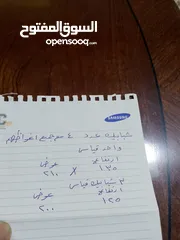 السوق المفتوح
opensooq.com
SAMSUNG
شبابيك عدد ٤ مع جميع اغراضهم
واحد قياس
ارتفاع عرض
١٣٥ X ٢١٠
٣ شبابيك قياس
ارتفاع عرض
١٢٥ ٢٠٠